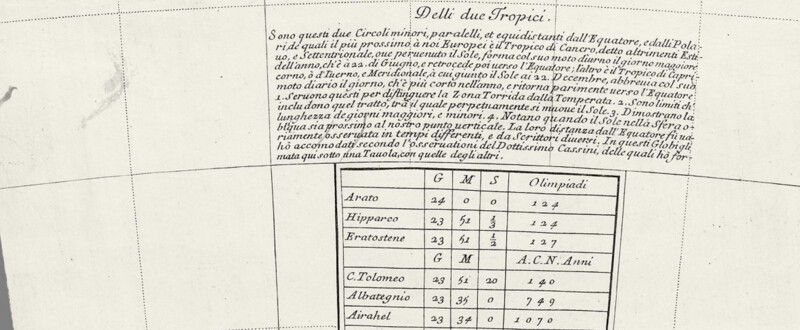 Delli due Tropici.
Sono questi due Circoli minori, paralelli, et equidistanti dall'Equatore, e dalli Pola-
ri, de quali il più prossimo à noi Europei è il Tropico di Cancro, detto altrimenti Esti-
uo, e Settentrionale, oue peruenuto il Sole, forma col suo moto diurno il giorno maggiore
dell'anno, ch'è à 22. di Giugno, e retrocede poi uerso l'Equatore; l'altro è il Tropico di Capri-
corno, ò d'Inuerno, e Meridionale, à cui giunto il Sole ai 22. Decembre, abbreuia col suo
moto diario il giorno, ch'è più corto nell'anno, e ritorna parimente uerso l'Equatore
1. Seruono questi per distinguere la Zona Torrida dalla Temperata. 2. Sono limiti ch'
includono quel tratto, trà il quale perpetuamente si muoue il Sole. 3. Dimostrano la
lunghezza de giorni maggiori, e minori. 4. Notano quando il Sole nella Sfera o-
bliqua sia prossimo al nostro punto uerticale. La loro distanza dall'Equatore fù ua-
riamente osseruata in tempi differenti, e da Scrittori diuersi. In questi Globi gli
hò accomodati secondo l'osseruationi del Dottissimo Cassini, delle quali hò for-
mata qui sotto una Tauola, con quelle degli altri.
G M S Olimpiadi
Arato 24 0 0 124
Hipparco 23 51 1/3 124
Eratostene 23 51 1/2 127
G M A.C.N. Anni
C. Tolomeo 23 51 20 140
Albategnio 23 35 0 749
Airahel 23 34 0 1070